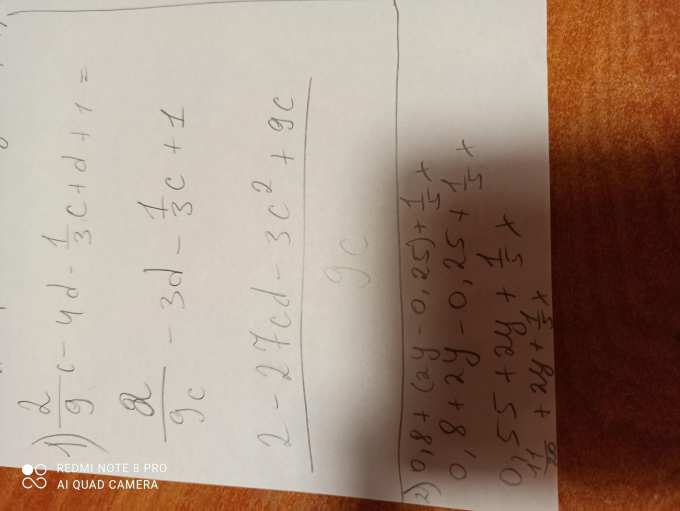 1) 2/9 c - 4d - 1/3 c + d + 1 =
2/9c - 3d - 1/3 c + 1
2 - 27cd - 3c² + 9c
9c
2) 0,8 + (2y - 0,25) + 1/5 x
0,8 + 2y - 0,25 + 1/5 x
0,55 + 2y + 1/5 x
+ 2y + 1/5 x
REDMI NOTE 8 PRO
AI QUAD CAMERA